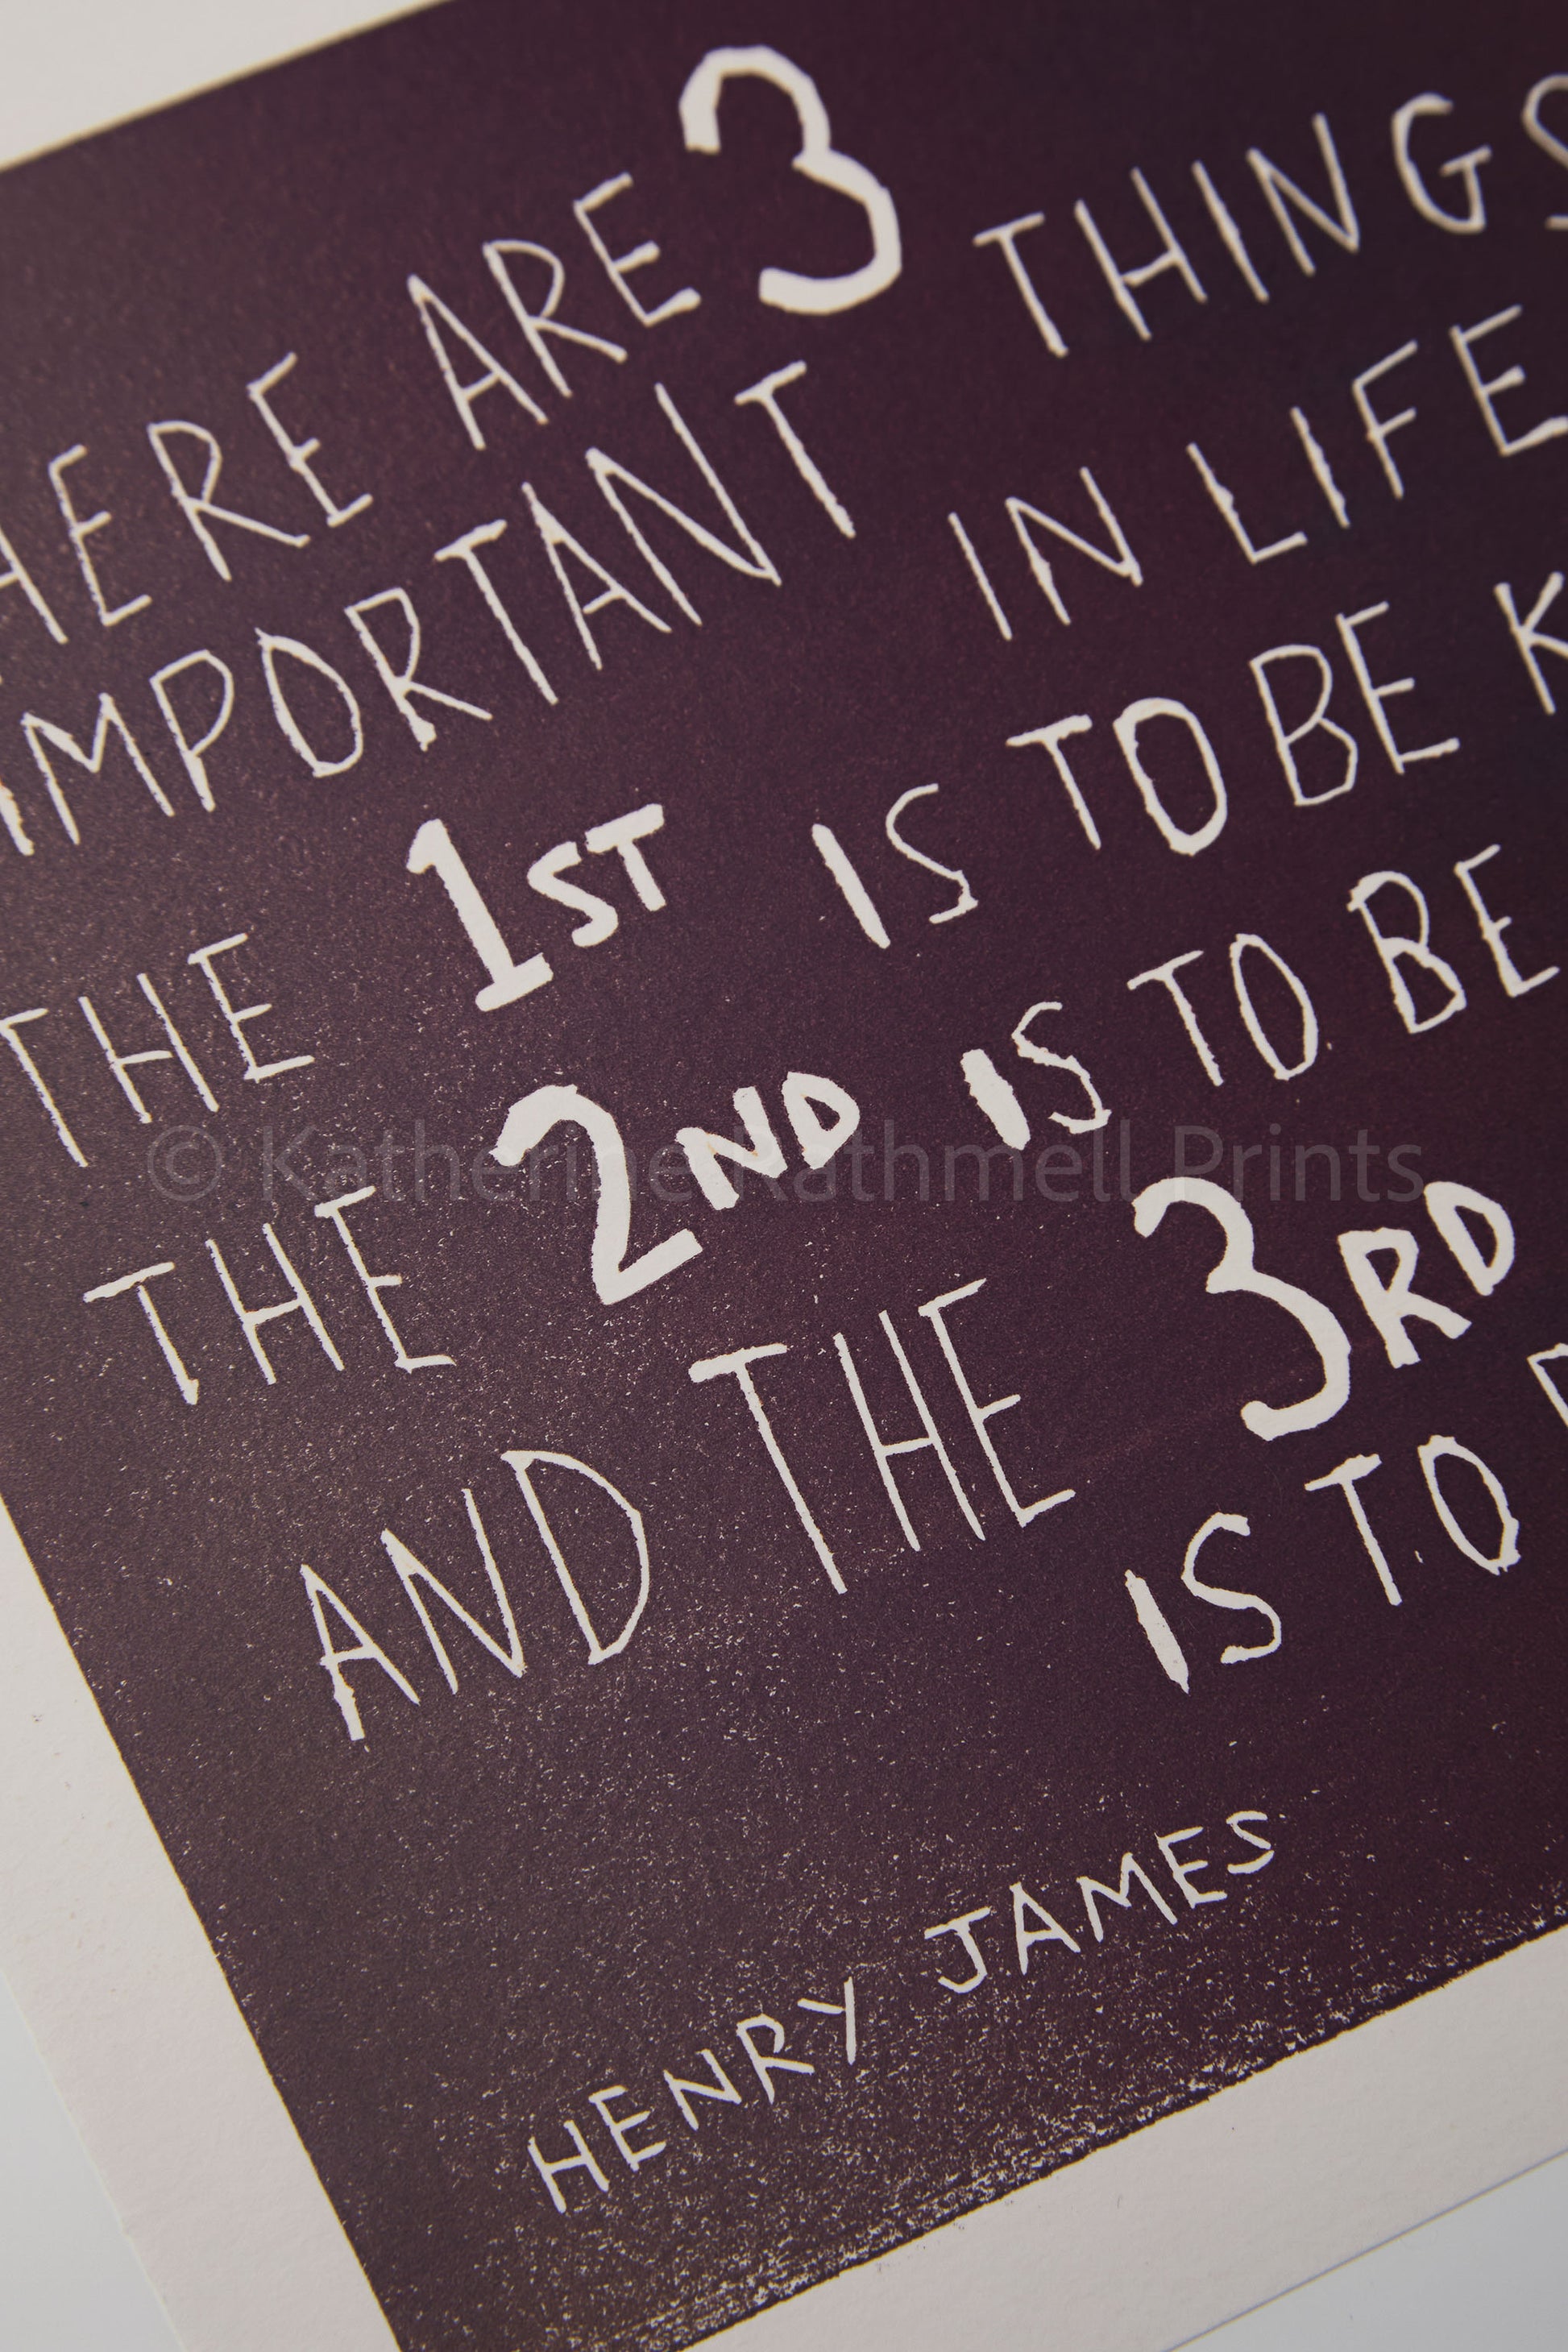 HERE ARE 3 THINGS
IMPORTANT IN LIFE
THE 1ST IS TO BE K
THE 2ND IS TO BE
AND THE 3RD
IS TO
HENRY JAMES
© Katherine Rathmell Prints